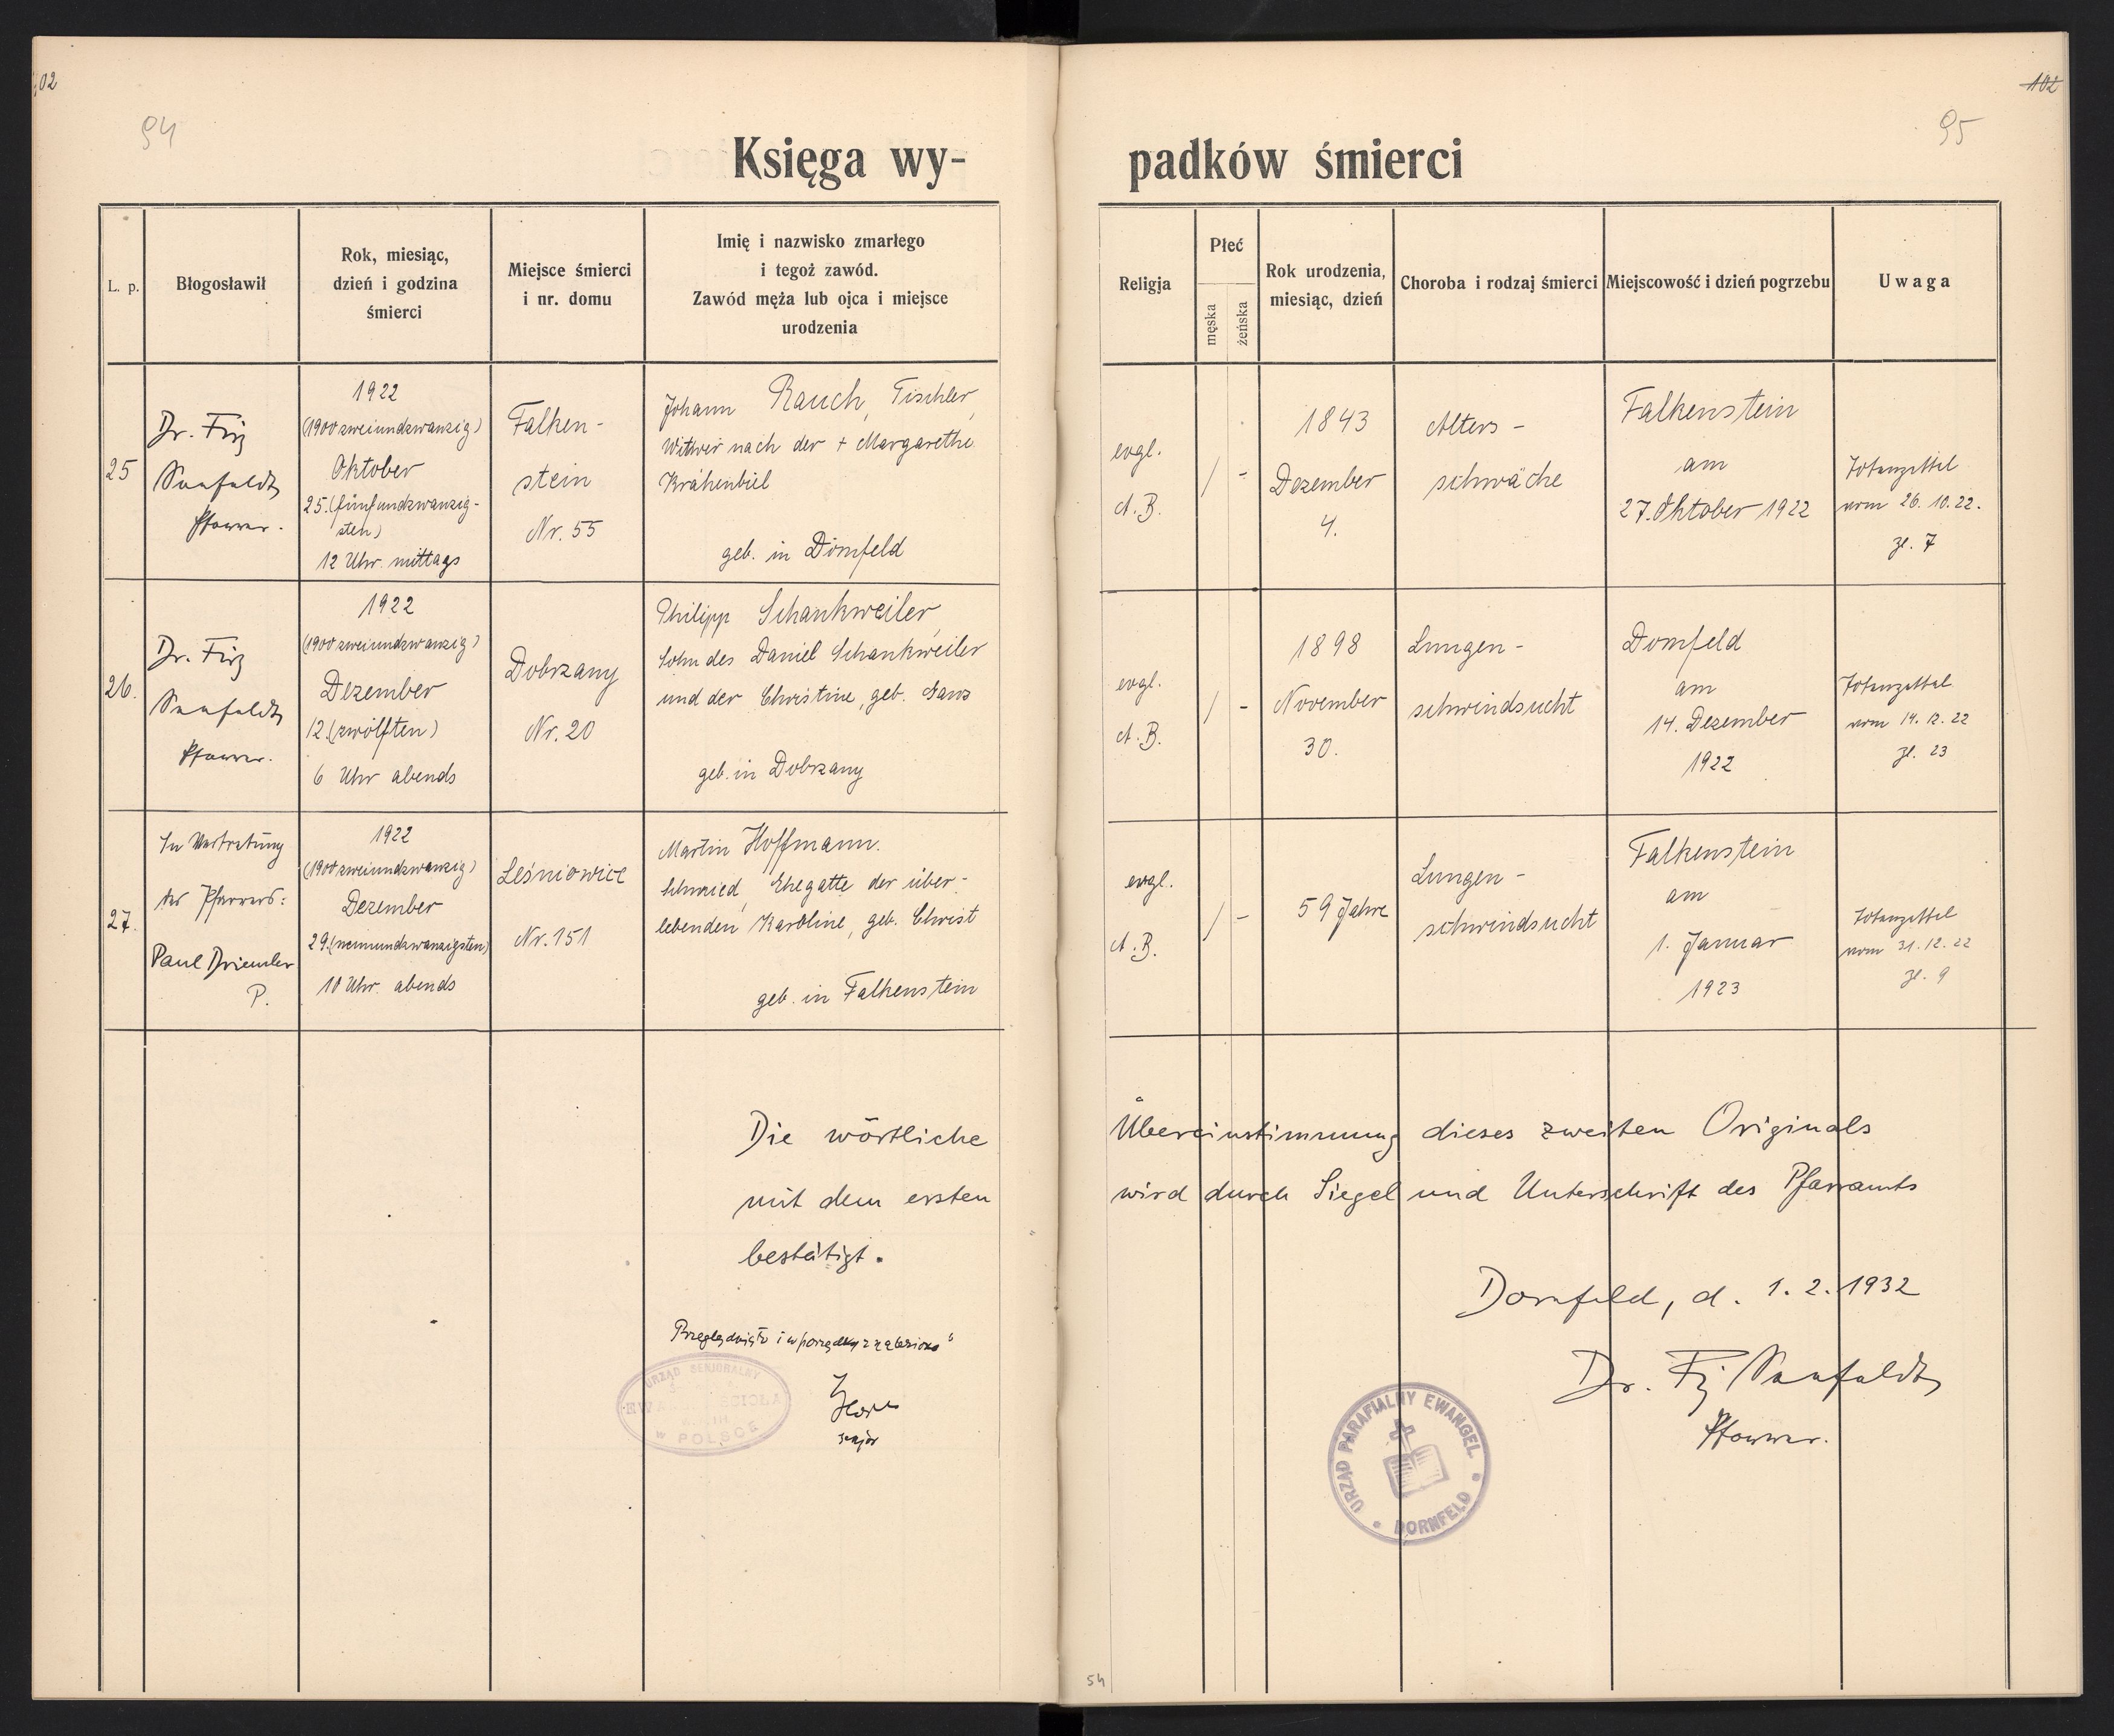 02
94
Księga wy-
L. p.
Błogosławił
Rok, miesiąc,
dzień i godzina
śmierci
Miejsce śmierci
i nr. domu
Imię i nazwisko zmarłego
i tegoż zawód.
Zawód męża lub ojca i miejsce
urodzenia
25
Dr. Fritz
Seefeldt
Pfarrer.
1922
(1900 zweiundzwanzig)
Oktober
25. (fünfundzwanzig-
sten)
12 Uhr mittags
Falken-
stein
Nr. 55
Johann Rauch, Tischler,
Witwer nach der + Margarethe
Krähenbiel
geb. in Dornfeld
26.
Dr. Fritz
Seefeldt
Pfarrer.
1922
(1900 zweiundzwanzig)
Dezember
12. (zwölften)
6 Uhr abends
Dobrzany
Nr. 20
Philipp Schankweiler,
Sohn des Daniel Schankweiler
und der Christine, geb. Manz
geb. in Dobrzany
27.
In Vertretung
des Pfarrers:
Paul Driemler
P.
1922
(1900 zweiundzwanzig)
Dezember
29. (neunundzwanzigsten)
10 Uhr abends
Leśniowice
Nr. 151
Martin Hoffmann.
Schmied, Ehegatte der über-
lebenden Karoline, geb. Christ
geb. in Falkenstein
Die wörtliche
mit dem ersten
bestätigt.
Przeglądnięto i w porządku znaleziono
URZĄD SENJORALNY
w POLSCE
senjor
102
95
padków śmierci
Religja
Płeć
męska
żeńska
Rok urodzenia,
miesiąc, dzień
Choroba i rodzaj śmierci
Miejscowość i dzień pogrzebu
Uwaga
evgl.
A.B.
/ -
1843
Dezember
4.
Alters-
schwäche
Falkenstein
am
27. Oktober 1922
Totenzettel
vom 26.10.22.
Zl. 7
evgl.
A.B.
/ -
1898
November
30.
Lungen-
schwindsucht
Dornfeld
am
14. Dezember
1922
Totenzettel
vom 14.12.22
Zl. 23
evgl.
A.B.
/ -
59 Jahre
Lungen-
schwindsucht
Falkenstein
am
1. Januar
1923
Totenzettel
vom 31.12.22
Zl. 9
Übereinstimmung dieses zweiten Originals
wird durch Siegel und Unterschrift des Pfarramts
Dornfeld, d. 1.2.1932
Dr. Fritz Seefeldt
Pfarrer.
URZĄD PARAFIALNY EWANGEL.
DORNFELD
54